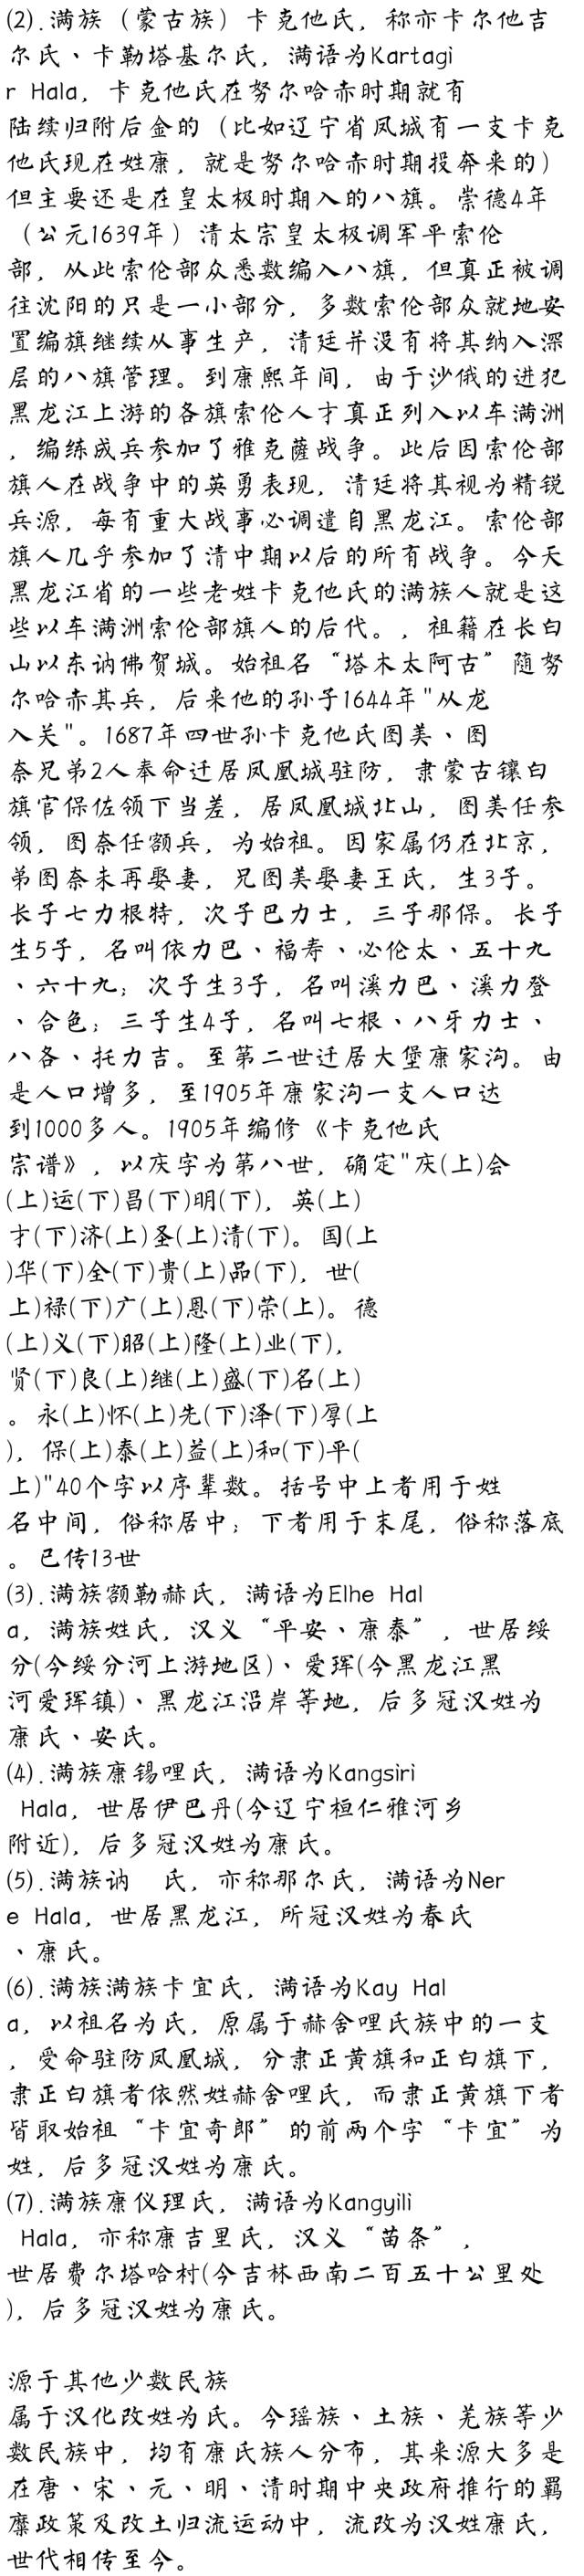 (2).满族（蒙古族）卡克他氏，称亦卡尔他吉
尔氏、卡勒塔基尔氏，满语为Kartagi
r Hala，卡克他氏在努尔哈赤时期就有
陆续归附后金的（比如辽宁省凤城有一支卡克
他氏现在姓康，就是努尔哈赤时期投奔来的）
但主要还是在皇太极时期入的八旗。崇德4年
（公元1639年）清太宗皇太极调军平索伦
部，从此索伦部众悉数编入八旗，但真正被调
往沈阳的只是一小部分，多数索伦部众就地安
置编旗继续从事生产，清廷并没有将其纳入深
层的八旗管理。到康熙年间，由于沙俄的进犯
黑龙江上游的各旗索伦人才真正列入以车满洲
，编练成兵参加了雅克薩战争。此后因索伦部
旗人在战争中的英勇表现，清廷将其视为精锐
兵源，每有重大战事必调遣自黑龙江。索伦部
旗人几乎参加了清中期以后的所有战争。今天
黑龙江省的一些老姓卡克他氏的满族人就是这
些以车满洲索伦部旗人的后代。，祖籍在长白
山以东讷佛贺城。始祖名“塔木太阿古”随努
尔哈赤其兵，后来他的孙子1644年"从龙
入关"。1687年四世孙卡克他氏图美、图
奈兄弟2人奉命迁居凤凰城驻防，隶蒙古镶白
旗官保佐领下当差，居凤凰城北山，图美任参
领，图奈任额兵，为始祖。因家属仍在北京，
弟图奈未再娶妻，兄图美娶妻王氏，生3子。
长子七力根特，次子巴力士，三子那保。长子
生5子，名叫依力巴、福寿、必伦太、五十九
、六十九；次子生3子，名叫溪力巴、溪力登
、合色；三子生4子，名叫七根、八牙力士、
八各、托力吉。至第二世迁居大堡康家沟。由
是人口增多，至1905年康家沟一支人口达
到1000多人。1905年编修《卡克他氏
宗谱》，以庆字为第八世，确定"庆(上)会
(上)运(下)昌(下)明(下)，英(上)
才(下)济(上)圣(上)清(下)。国(上
)华(下)全(下)贵(上)品(下)，世(
上)禄(下)广(上)恩(下)荣(上)。德
(上)义(下)昭(上)隆(上)业(下)，
贤(下)良(上)继(上)盛(下)名(上)
。永(上)怀(上)先(下)泽(下)厚(上
)，保(上)泰(上)益(上)和(下)平(
上)"40个字以序辈数。括号中上者用于姓
名中间，俗称居中；下者用于末尾，俗称落底
。已传13世
(3).满族额勒赫氏，满语为Elhe Hal
a，满族姓氏，汉义“平安、康泰”，世居绥
分(今绥分河上游地区)、爱珲(今黑龙江黑
河爱珲镇)、黑龙江沿岸等地，后多冠汉姓为
康氏、安氏。
(4).满族康锡哩氏，满语为Kangsiri
Hala，世居伊巴丹(今辽宁桓仁雅河乡
附近)，后多冠汉姓为康氏。
(5).满族讷　氏，亦称那尔氏，满语为Ner
e Hala，世居黑龙江，所冠汉姓为春氏
、康氏。
(6).满族满族卡宜氏，满语为Kay Hal
a，以祖名为氏，原属于赫舍哩氏族中的一支
，受命驻防凤凰城，分隶正黄旗和正白旗下，
隶正白旗者依然姓赫舍哩氏，而隶正黄旗下者
皆取始祖“卡宜奇郎”的前两个字“卡宜”为
姓，后多冠汉姓为康氏。
(7).满族康仪理氏，满语为Kangyili
Hala，亦称康吉里氏，汉义“苗条”，
世居费尔塔哈村(今吉林西南二百五十公里处
)，后多冠汉姓为康氏。
源于其他少数民族
属于汉化改姓为氏。今瑶族、土族、羌族等少
数民族中，均有康氏族人分布，其来源大多是
在唐、宋、元、明、清时期中央政府推行的羁
糜政策及改土归流运动中，流改为汉姓康氏，
世代相传至今。